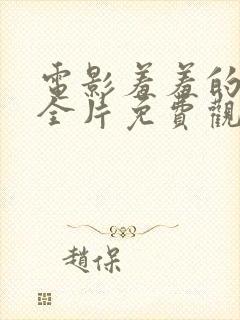 電影羞羞的
全片免費觀
趙保